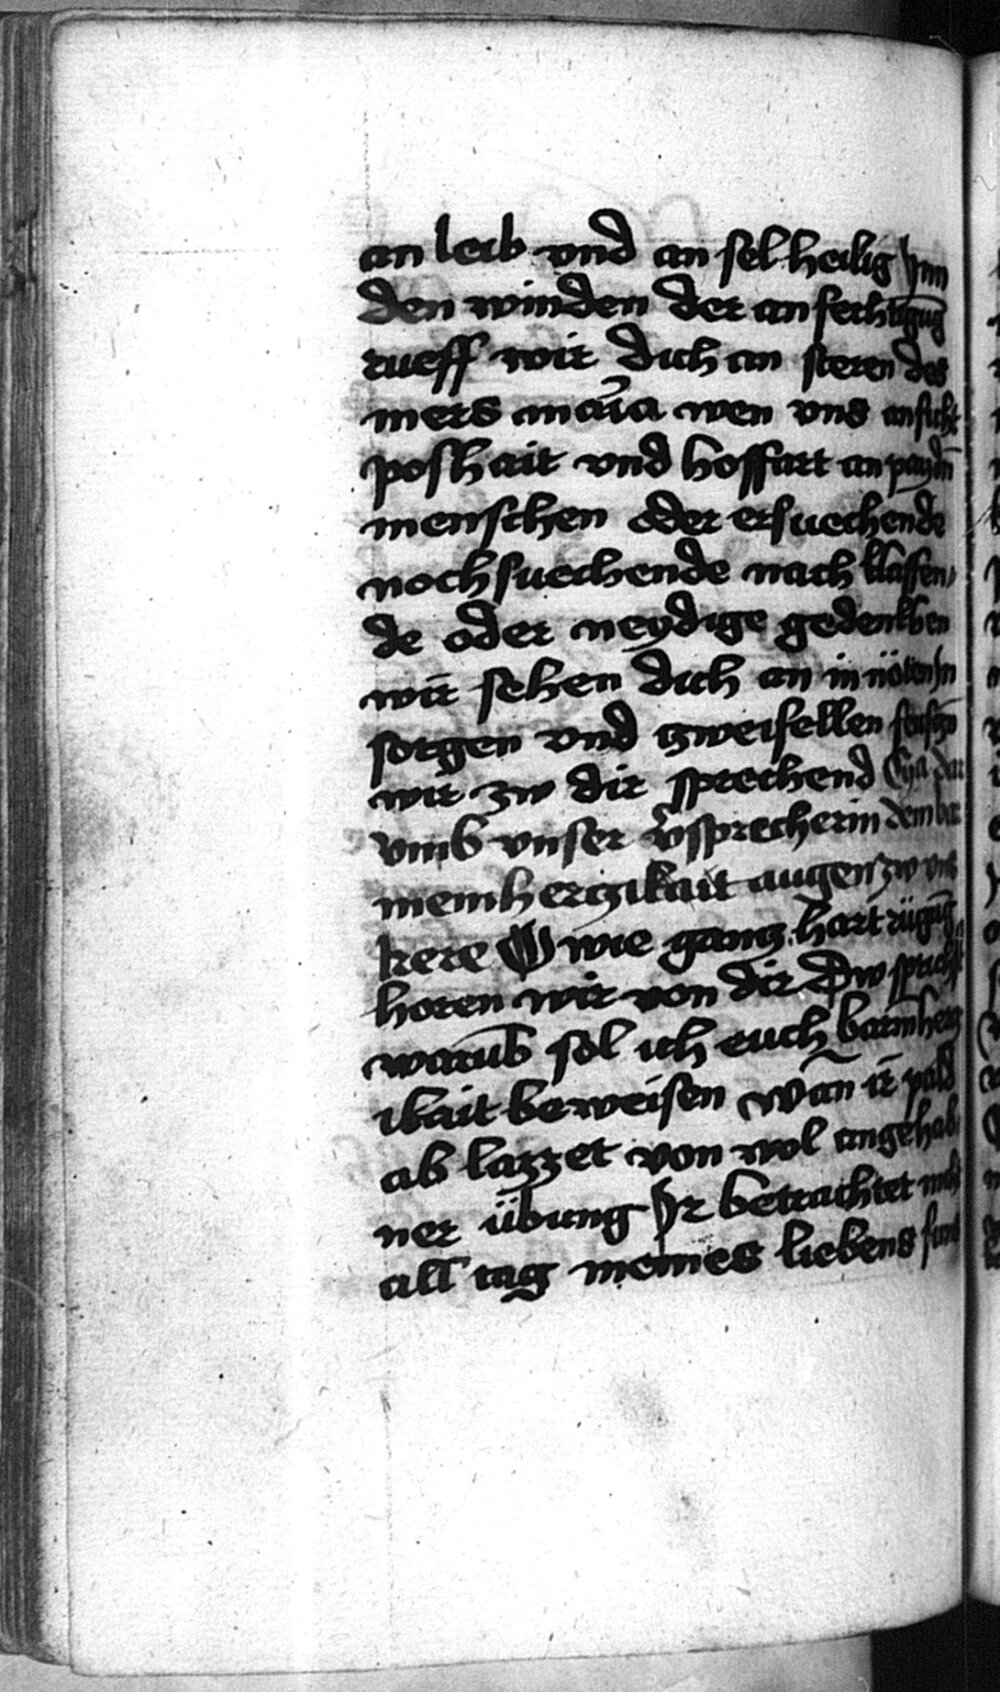 an leib vnd an sel heilig Inn
den winden der anfechtigung
rueff wir dich an steren des
mers maria wen vns anficht
poshait vnd hoffart an paydn̄
menschen oder ersuechende
noch suechende nach klaffen,
de oder neydige gedenkhen
wir sehen dich an in nöten In
sorgen vnd zweifellen
wir zw dir sprechend Eya dar
vmb vnser v̄sprecherin dein bar
memherczikait augen zw vns
kere O wie gancz hart
horen wir von dir Dw sprichst
warūb sol ich euch barmhercz
ikait beweisen wān ir pald
ab lazzet von wol angehab
ner übung Ir betrachtet nicht
all tag meines liebens